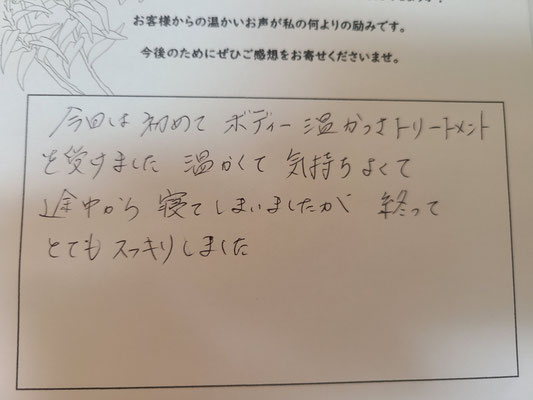 お客様からの温かいお声が私の何よりの励みです。
今後のためにぜひご感想をお寄せくださいませ。
今回は初めて ボディー温かっさトリートメント
を受けました 温かくて 気持ちよくて
途中から 寝てしまいましたが 終って
とてもスッキリしました